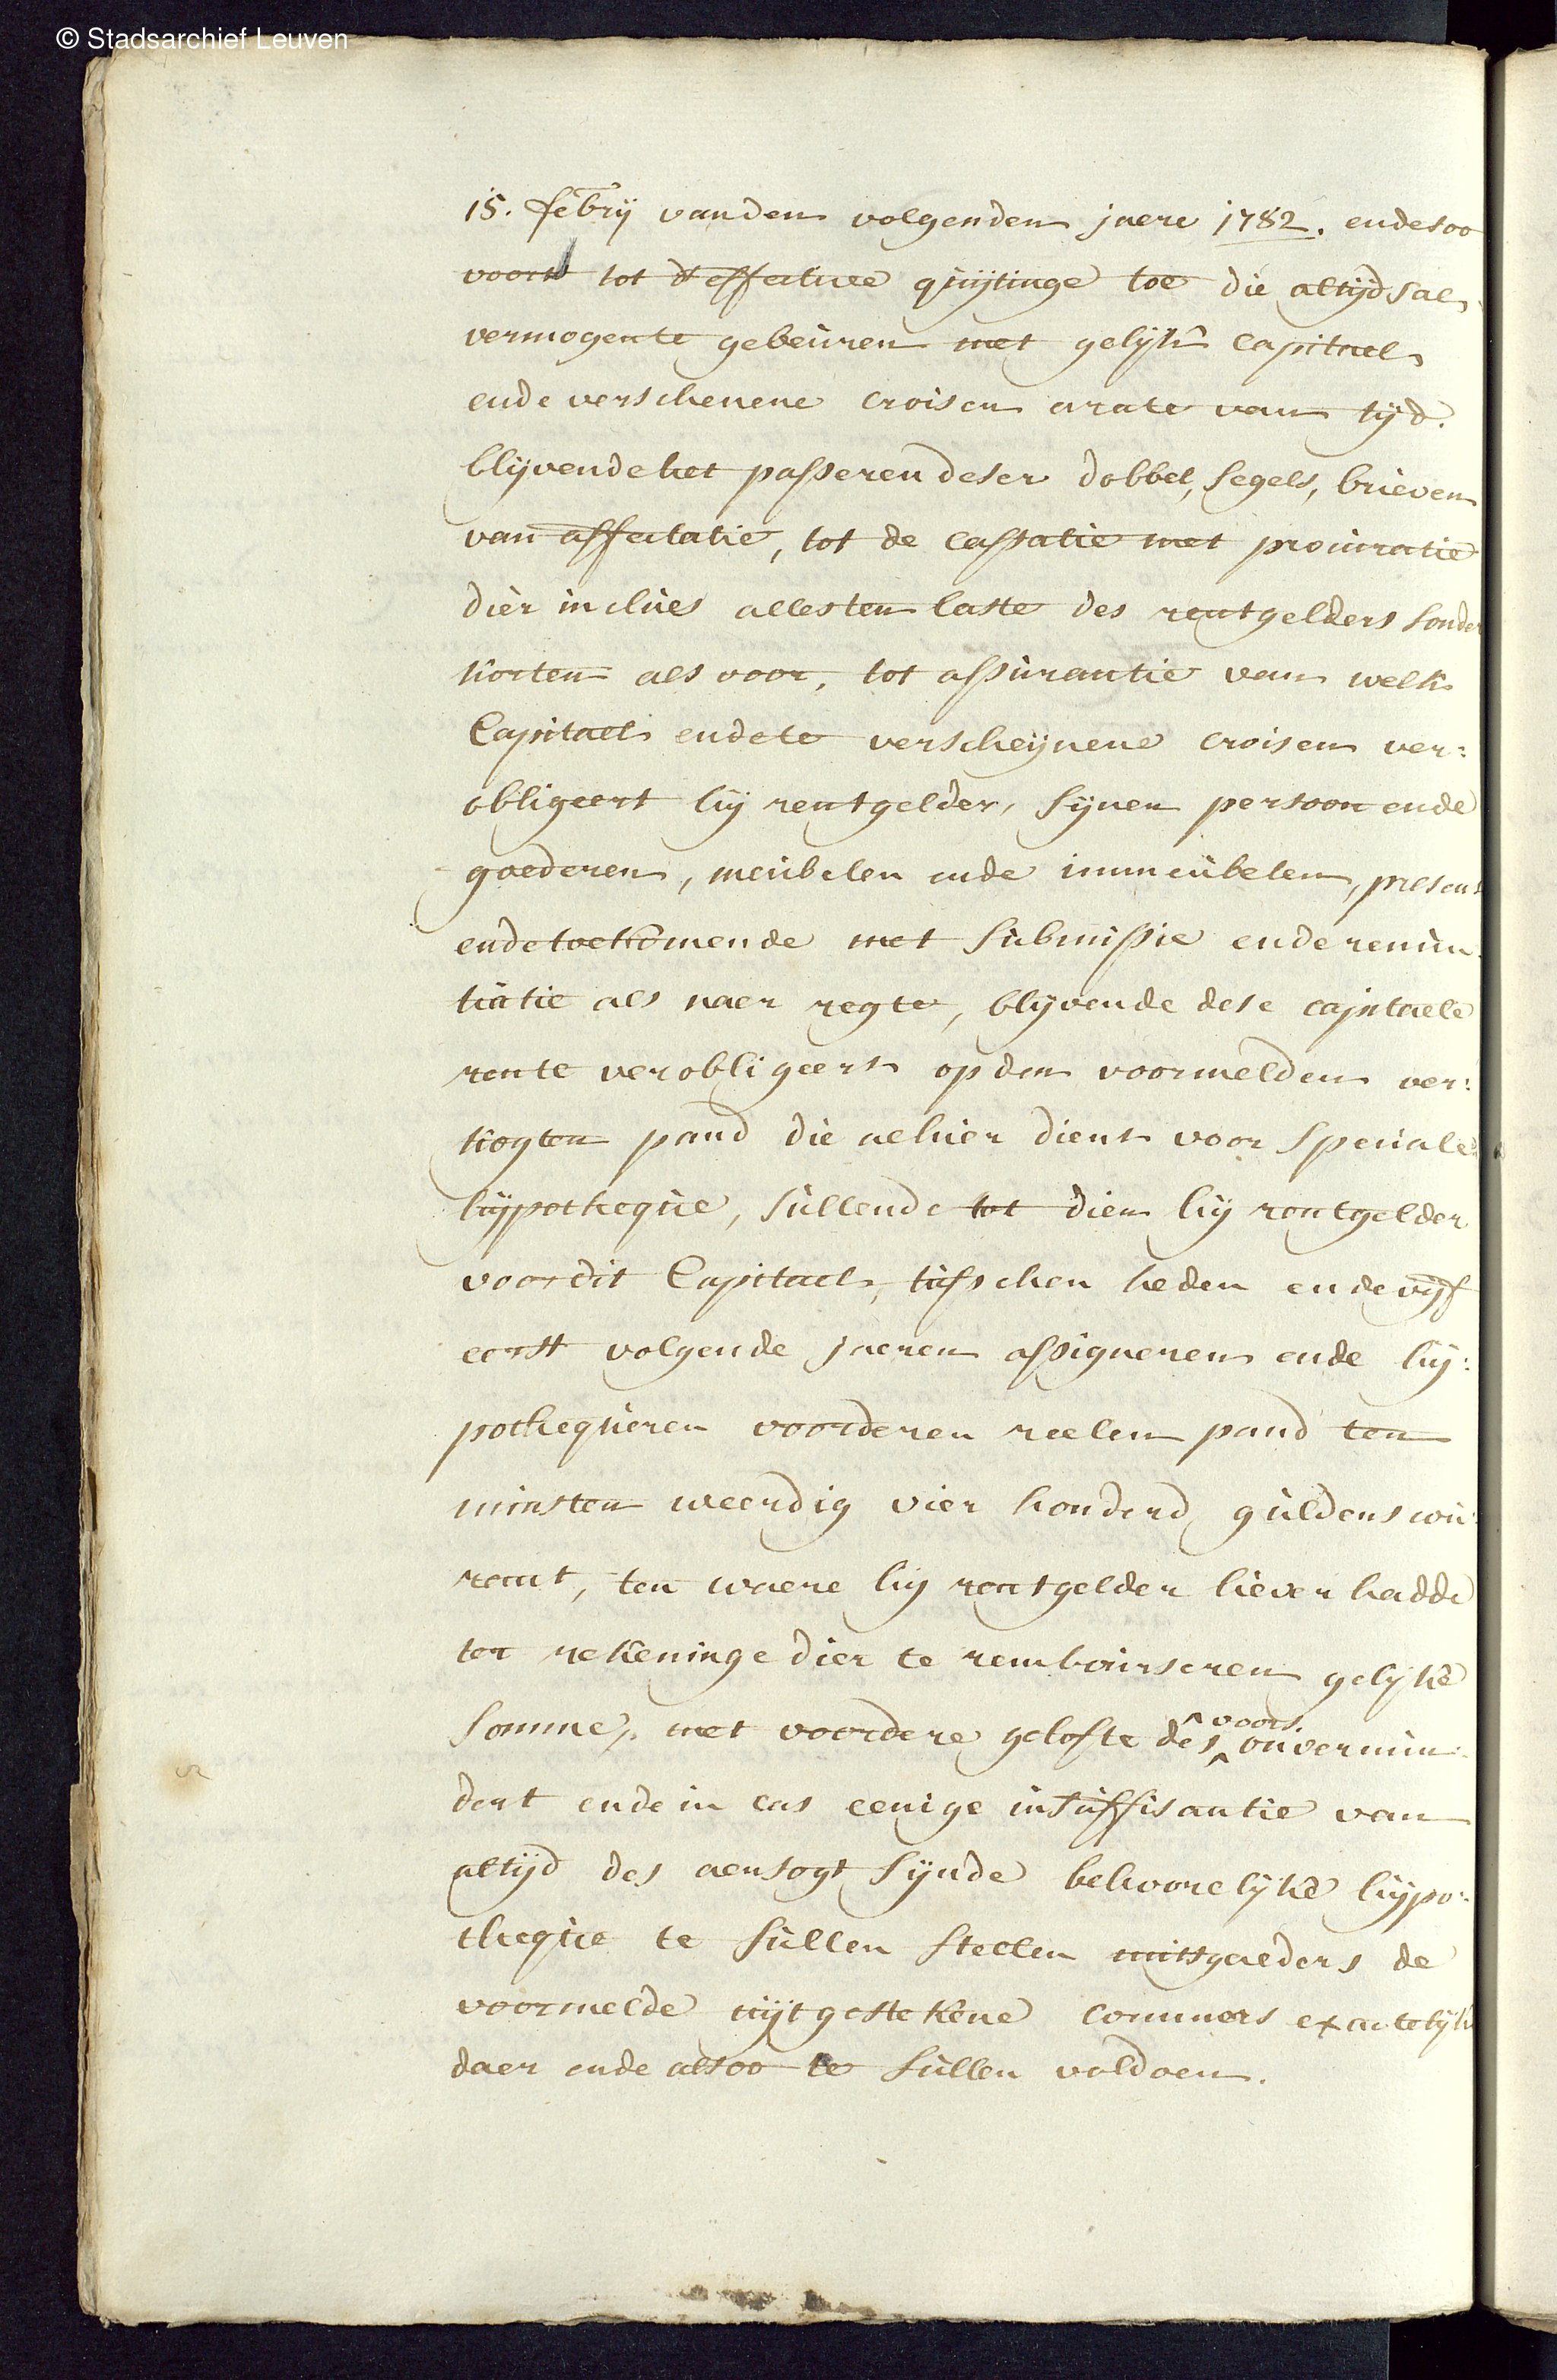 © Stadsarchief Leuven
15. febrij vanden volgenden jaere 1782. ende soo
voorts tot d'effective quijtinge toe die altijd sal
vermogen te gebeuren met gelijk capitael
ende verschenene croisen a rate van tijd.
blijvende het passeren deser dobbel, segels, brieven
van affectatie, tot de cassatie met procuratie
dier inclues alles ten laste des rentgelders sonder
korten als voor, tot assurantie van welk
Capitael ende te verscheijnene croisen ver:
obligeert hij rentgelder, sijnen persoon ende
goederen, meubelen ende immeubelen, present
ende toekomende met submissie ende renun:
tiatie als naer regte, blijvende dese capitaele
rente verobligeert op den voormelden ver:
kogten pand die alhier dient voor speciale
hijpotheque, sullende tot dien hij rentgelder
voor dit Capitael, tusschen heden ende vijf
eerst volgende jaeren assigneren ende hij:
pothequeren voorderen reelen pand ten
minsten weerdig vier honderd guldens cou:
rant, ten waere hij rentgelder liever hadde
ter rekeninge dier te rembourseren gelijke
somme, met voordere gelofte des voors. onvermin:
dert ende in cas eenige insuffisantie van
altijd des aensogt sijnde behoorelijke hijpo:
theque te sullen stellen mitsgaeders de
voormelde uijtgestekene commers exactelijk
daer ende alsoo te sullen voldoen.